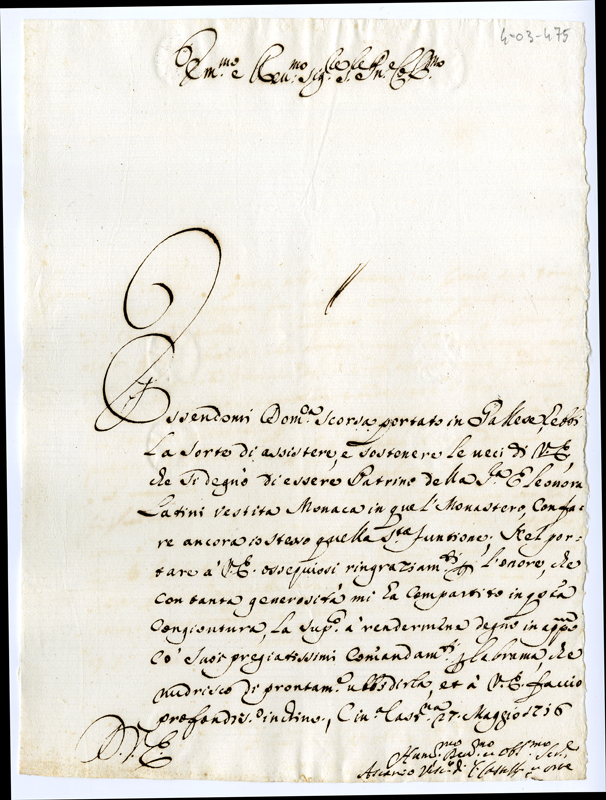 4-03-475
Em.mo e Reu.mo Sig.re
Essendomi Dom.ca scorsa portato in Gallese, ebbi
la sorte di assistere, e sostenere le ueci di V.E.
che si degnò di essere Patrino della Eleonora
Latini uestita Monaca in quel Monastero, con fa=
re ancora io stesso quella funtione. Nel por=
tare à V.E. ossequiosi ringraziam.ti l'onore, che
con tanta generosità mi hà compartito in
congiontura, la sup.co à rendermene degno in
cò suoi pregiatissimi Comandam.ti la brama, che
nudrisco di prontam.e ubbidirla, et à V.E. faccio
profondiss.o inchino, 27. Maggio 1716
D. V. E.
Hum.mo
Ascanio